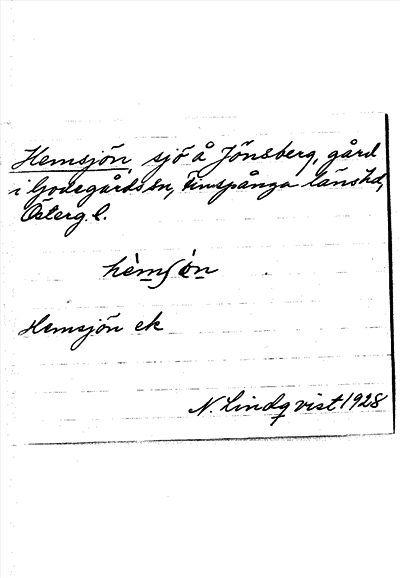 Hemsjön, sjö å Jönsberg, gård
i Godegårds sn, Finspånga länshd,
Österg. l.
hèmʃön
Hemsjön ek
N. Lindqvist 1928